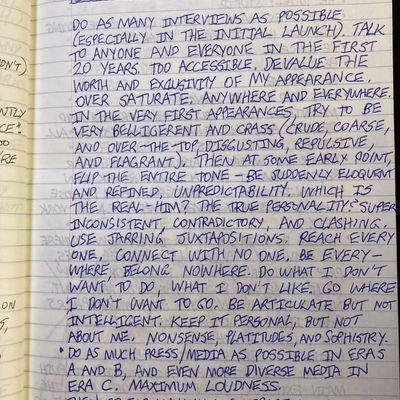 DO AS MANY INTERVIEWS AS POSSIBLE
(ESPECIALLY IN THE INITIAL LAUNCH). TALK
TO ANYONE AND EVERYONE IN THE FIRST
20 YEARS. TOO ACCESSIBLE. DEVALUE THE
WORTH AND EXCLUSIVITY OF MY APPEARANCE.
OVER SATURATE. ANYWHERE AND EVERYWHERE.
IN THE VERY FIRST APPEARANCES, TRY TO BE
VERY BELLIGERENT AND CRASS (CRUDE, COARSE,
AND OVER-THE-TOP, DISGUSTING, REPULSIVE,
AND FLAGRANT). THEN AT SOME EARLY POINT,
FLIP THE ENTIRE TONE - BE SUDDENLY ELOQUENT
AND REFINED. UNPREDICTABILITY. WHICH IS
THE REAL-HIM? THE TRUE PERSONALITY? SUPER
INCONSISTENT, CONTRADICTORY, AND CLASHING.
USE JARRING JUXTAPOSITIONS. REACH EVERY
ONE, CONNECT WITH NO ONE. BE EVERY-
WHERE BELONG NOWHERE. DO WHAT I DON'T
WANT TO DO, WHAT I DON'T LIKE. GO WHERE
I DON'T WANT TO GO. BE ARTICULATE BUT NOT
INTELLIGENT. KEEP IT PERSONAL, BUT NOT
ABOUT ME. NONSENSE, PLATITUDES, AND SOPHISTRY.
• DO AS MUCH PRESS/MEDIA AS POSSIBLE IN ERAS
A AND B, AND EVEN MORE DIVERSE MEDIA IN
ERA C. MAXIMUM LOUDNESS.